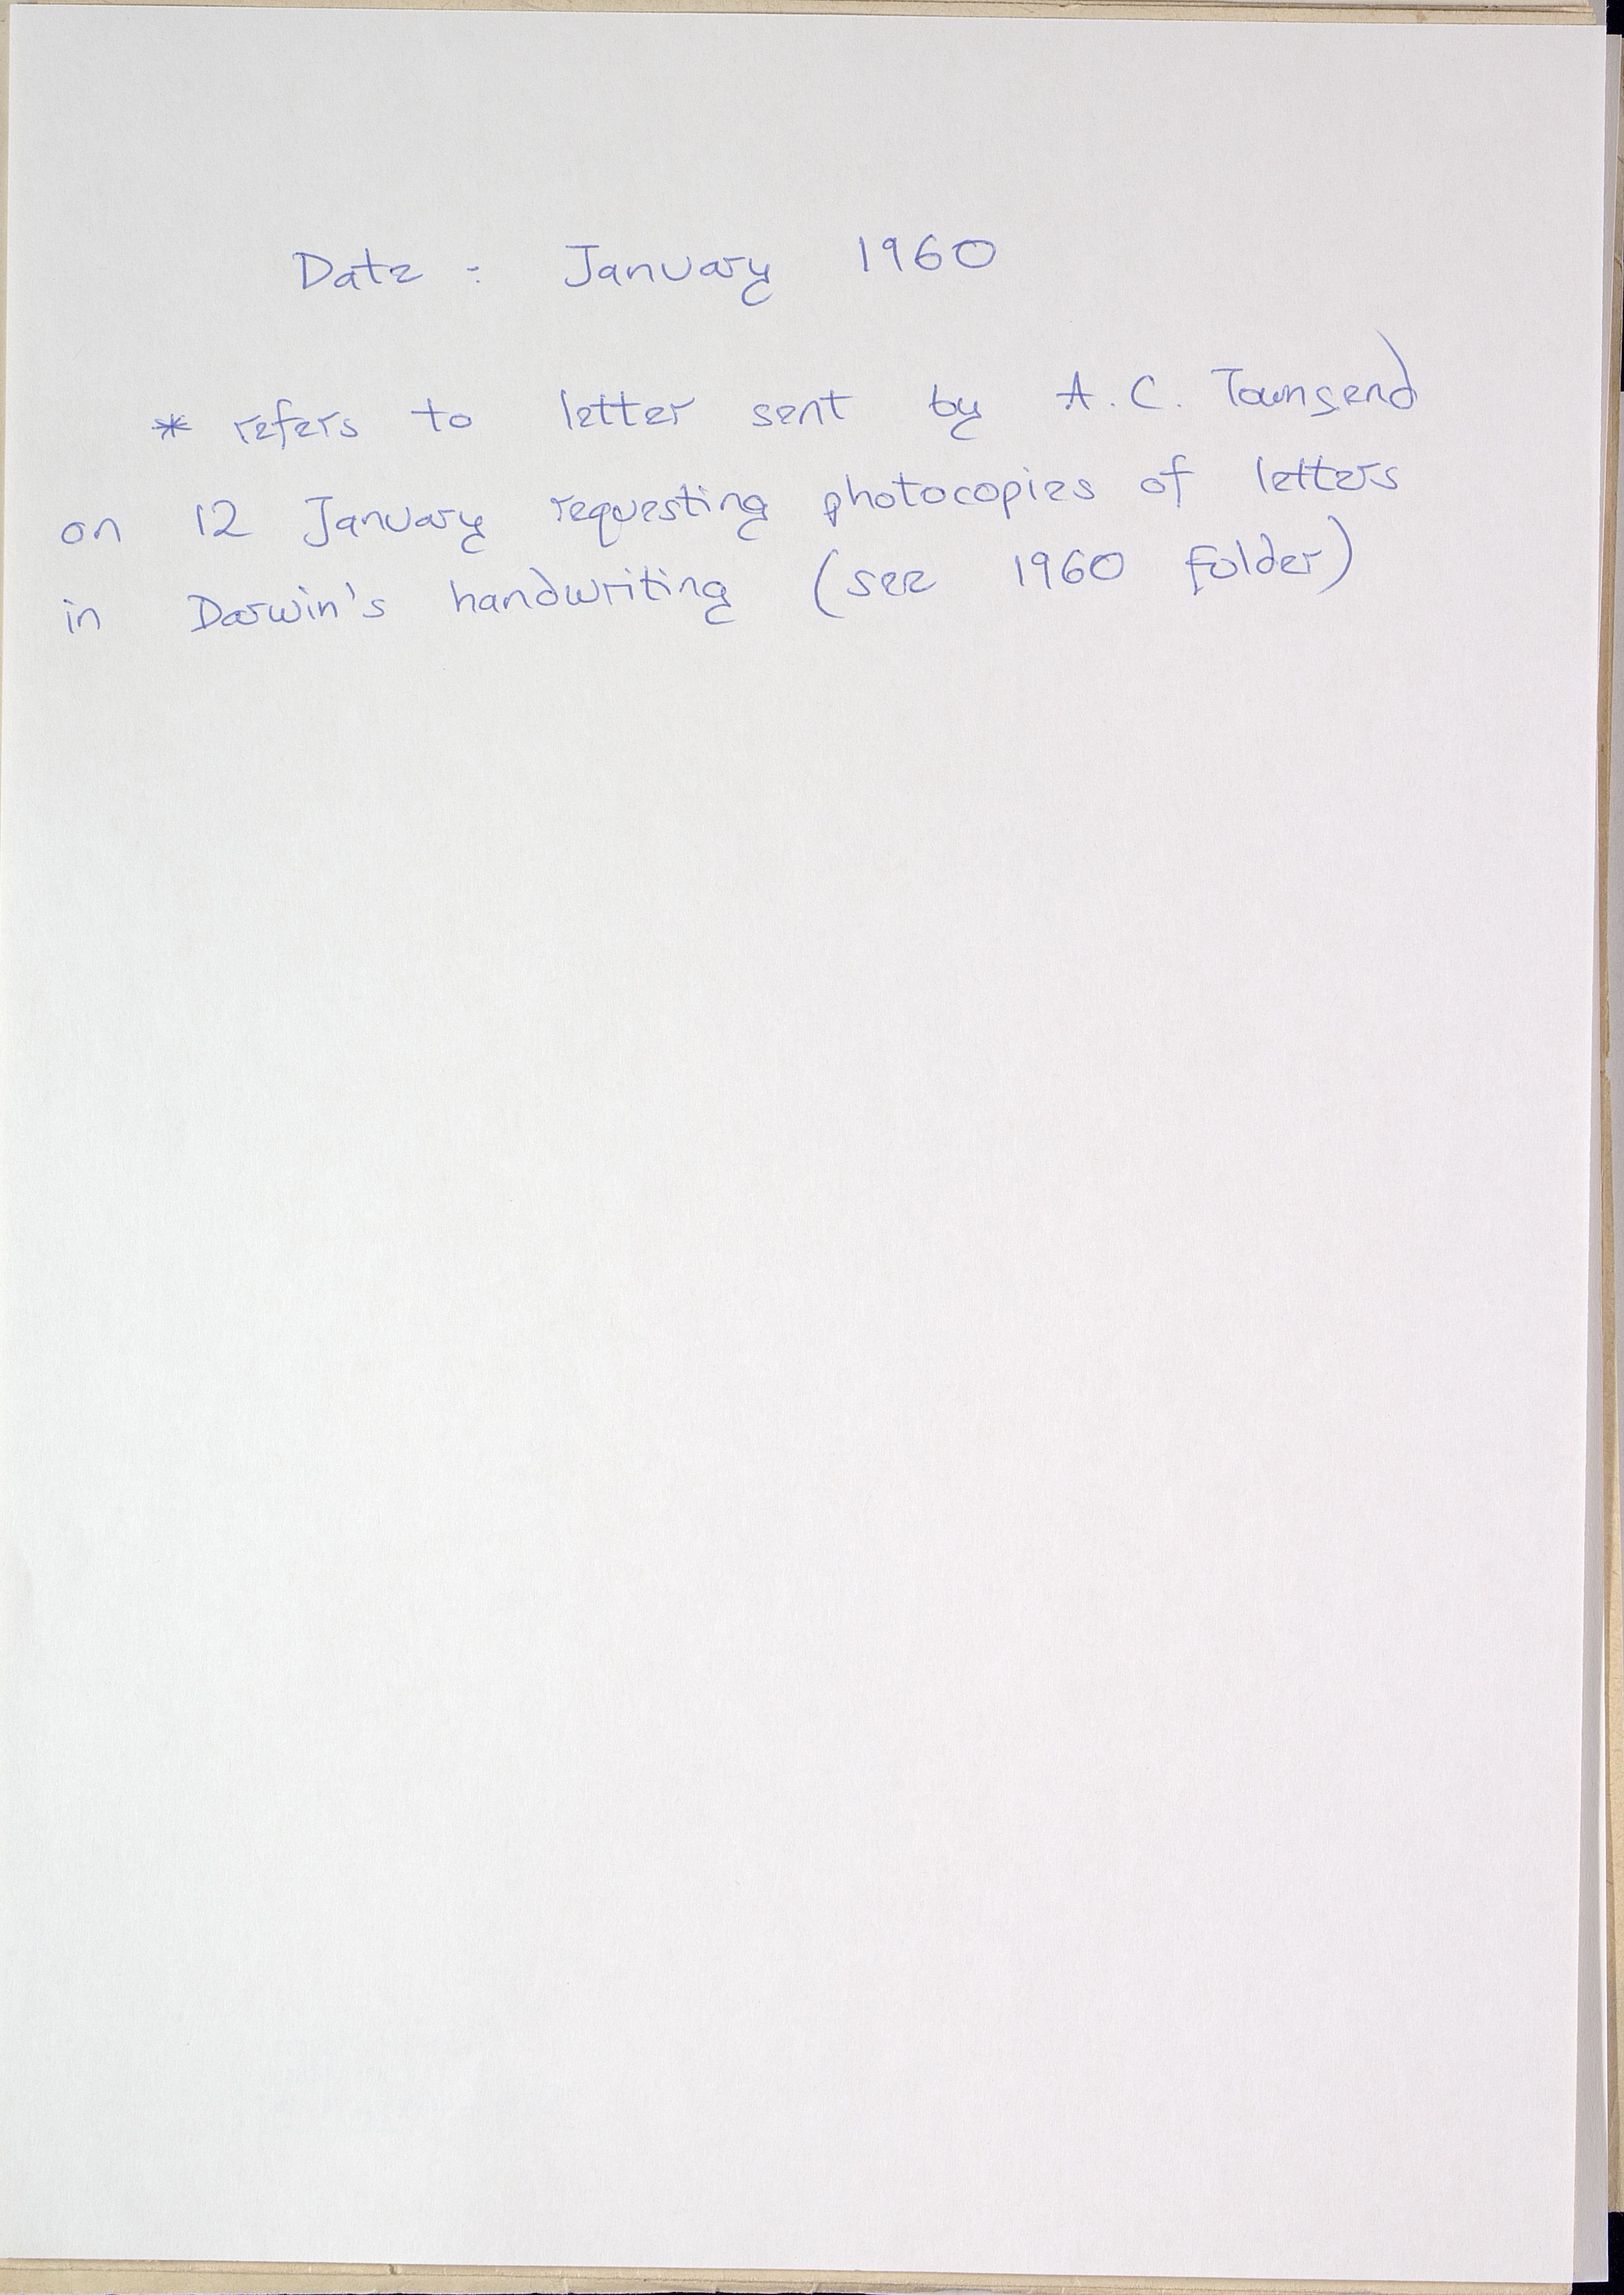 Date : January 1960
* refers to letter sent by A.C. Townsend
on 12 January requesting photocopies of letters
in Darwin's handwriting (see 1960 folder)